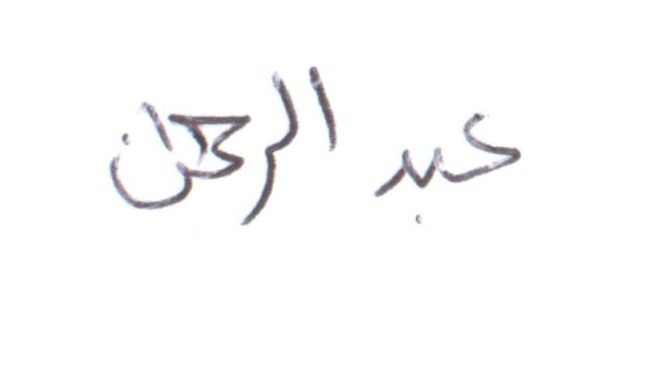 عبد الرحمن